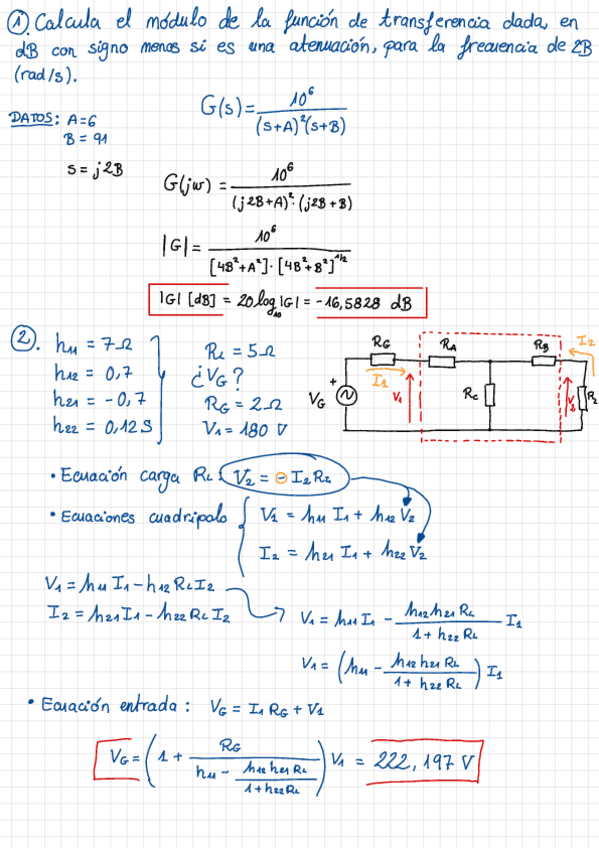 ① Calcula el módulo de la función de transferencia dada, en
dB con signo menos si es una atenuación, para la frecuencia de 2B
(rad/s).
DATOS: A=6
B = 91
G(s) = 10^6 / (s+A)^2(s+B)
s = j2B
G(jw) = 10^6 / (j2B+A)^2·(j2B+B)
|G| = 10^6 / [4B^2+A^2]·[4B^2+B^2]^1/2
|G| [dB] = 20 log_10 |G| = -16,5828 dB
②. h11 = 7Ω
h12 = 0,7
h21 = -0,7
h22 = 0,12 S
RL = 5Ω
¿VG?
RG = 2Ω
V1 = 180 V
RG
RA
RB
I2
I1
V1
RC
V2
RL
+
VG
• Ecuación carga RL: V2 = -I2 RL
• Ecuaciones cuadripolo { V1 = h11 I1 + h12 V2
I2 = h21 I1 + h22 V2
V1 = h11 I1 - h12 RL I2
I2 = h21 I1 - h22 RL I2
V1 = h11 I1 - h12 h21 RL / 1 + h22 RL I1
V1 = (h11 - h12 h21 RL / 1 + h22 RL) I1
• Ecuación entrada: VG = I1 RG + V1
VG = (1 + RG / h11 - h12 h21 RL / 1 + h22 RL) V1 = 222,197 V